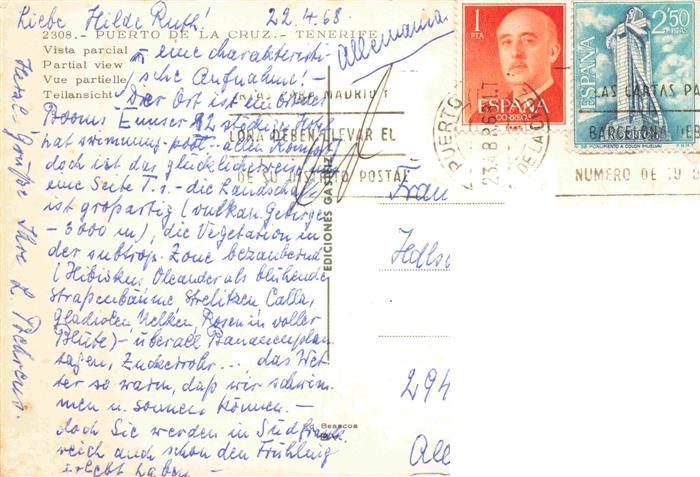 Liebe Hilde Ruth! 22.4.68
2308.- PUERTO DE LA CRUZ.- TENERIFE
Vista parcial
Partial view
Vue partielle
Teilansicht
Allemania
eine charakteristi-
sche Aufnahme! -
Der Ort ist ein
Booms unser 22 stöck.
hat swimming-pool - allen Komfort
doch ist das glücklicherweise nur
eine Seite T.s - die Landschaft
ist großartig (vulkan. Gebirge
- 3000 m), die Vegetation in
der subtrop. Zone bezaubernd
(Hibiskus Oleander als blühende
Straßenbäume Strelitzen Calla,
Gladiolen, Nelken, Rosen in voller
Blüte) - überall Bananenplan
tagen, Zuckerrohr..., das Wet-
ter so warm, daß wir schwim-
men u. sonnen können. -
doch Sie werden in Südfrank
reich auch schon den Frühling
erlebt haben -
Herzl. Grüße Ihre L.
EDICIONES GASTEIZ
Ed Beascoa
Frau
294
All
1
PTA
ESPAÑA
CORREOS
2'50
PTAS
ESPAÑA
CORREOS
MONUMENTO A COLON (HUELVA)
PARA MADRID Y
LONA DEBEN LLEVAR EL
DE SU DISTRITO POSTAL
PUERTO
LAS CARTAS PA
BARCELONA DEB
NUMERO DE SU D